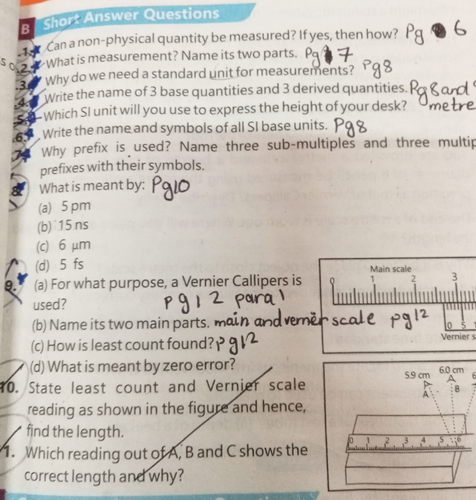 B Short Answer Questions
1. Can a non-physical quantity be measured? If yes, then how? Pg 6
2. What is measurement? Name its two parts. Pg 7
3. Why do we need a standard unit for measurements? Pg8
4. Write the name of 3 base quantities and 3 derived quantities. Pg8 and
5. Which SI unit will you use to express the height of your desk? metre
6. Write the name and symbols of all SI base units. Pg8
7. Why prefix is used? Name three sub-multiples and three multip
prefixes with their symbols.
8. What is meant by: Pg10
(a) 5 pm
(b) 15 ns
(c) 6 μm
(d) 5 fs
9. (a) For what purpose, a Vernier Callipers is
used? pg12 para1
(b) Name its two main parts. main and vernier scale pg12
(c) How is least count found? pg12
(d) What is meant by zero error?
10. State least count and Vernier scale
reading as shown in the figure and hence,
find the length.
1. Which reading out of A, B and C shows the
correct length and why?
Main scale
0 1 2 3
0 5
Vernier s
5.9 cm 6.0 cm 6
A A
A B
0 1 2 3 4 5 6